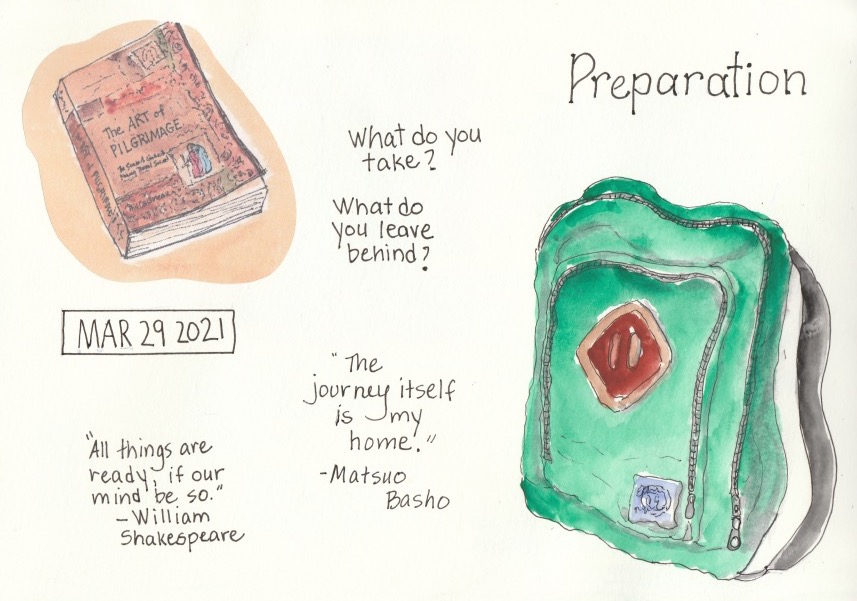 Preparation
The ART of
PILGRIMAGE
What do you
take?
What do
you leave
behind?
MAR 29 2021
"The
journey itself
is my
home."
-Matsuo
Basho
"All things are
ready, if our
mind be so."
-William
Shakespeare